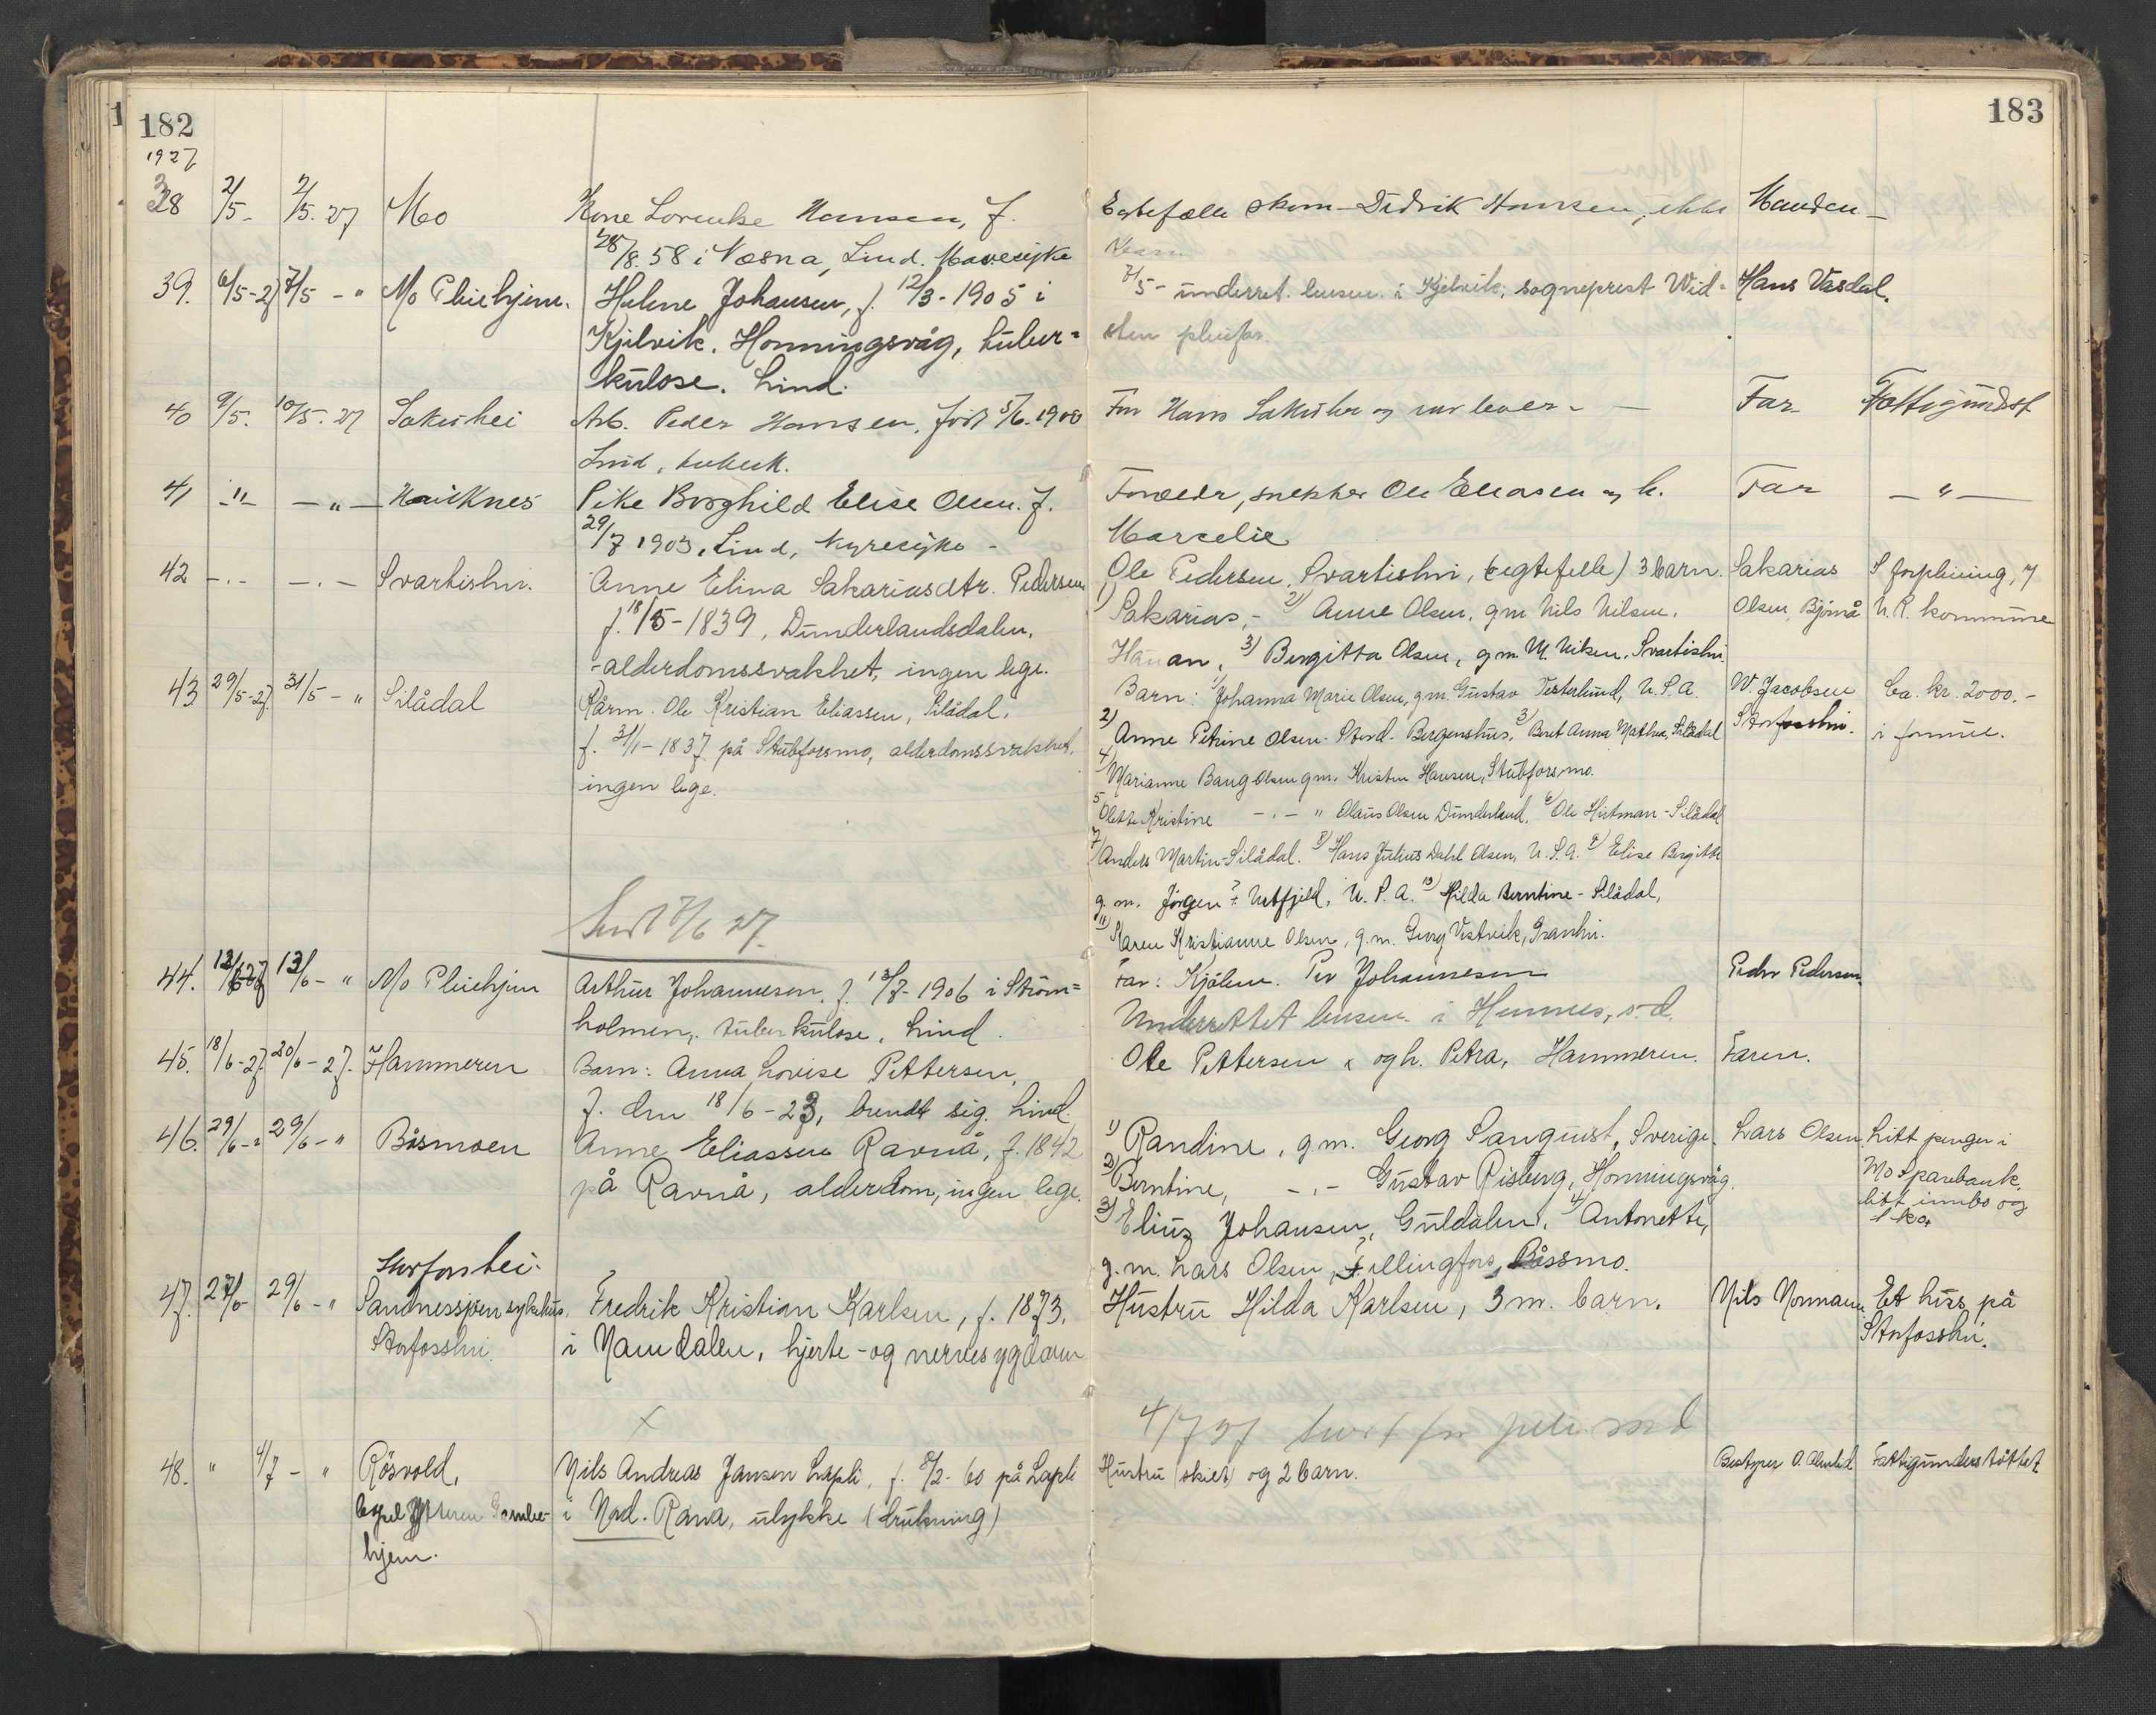 182
183
1927
38 2/5- 2/5. 27 Mo Kone Lorentse Hansen, f. Ektefælle skom. Didrik Hansen, ikke Manden -
28/8. 58 i Næsna, Lind. Mavesyke barn
39. 6/5-27 7/5 - " Mo Pleiehjem. Helene Johansen, f. 12/3-1905 i 7/5 - underret. lensm. i Kjelvik, sogneprest Wid= Hans Vasdal.
Kjelvik, Honningsvåg, tuber= sten pleiefar.
kulose. Lind.
40 9/5. 10/5. 27 Sakrishei Arb. Peder Hansen, født 5/6. 1900 Far Hans Sakrishei og mor lever - Far Fattigundst
Lind, tuberk.
41 -"- -"- Hauknes Pike Borghild Elise Olsen. f. Forældr, snekker Ole Eliasen og h. Far - " -
29/7 1903, Lind, Nyresyke - Marcelie
42 - . - - . - Svartishei. Anne Elina Sakariasdtr. Pedersen Ole Pedersen, Svartishei, (egtefelle) 3 barn. Sakarias S forpleining, 7
f. 18/5-1839, Dunderlandsdalen, 1) Sakarias, - 2) Anne Olsen, gm Nils Nilsen, Olsen, Bjørnå N. R. kommune
- alderdomssvakhet, ingen lege. 3) Bergitta Olsen, g.m. N. Nilsen, Svartishei
43 29/5-27. 31/5 - " Silådal Kårm. Ole Kristian Eliassen, Silådal, Barn: 1) Johanna Marie Olsen, g.m. Gustav Vesterlund, U.S.A. W. Jacobsen Ca. kr. 2000.-
f. 31/1-1837 på Stubforsmo, alderdomssvakhet, 2) Anne Petrine Olsen - Stord - Bergenshus, 3) Beret Anna Mathea, Silådal Storfosshei. i formue.
ingen lege. 4) Marianne Baug Olsen gm. Kristen Hansen, Stubforsmo.
5 Olette Kristine - . - " Olaus Olsen Dunderland, 6) Ole Hartman - Silådal
7) Anders Martin - Silådal. 8) Hans Julius Dahl Olsen, U.S.A. 9) Elise Bergitte
g. m. Jørgen ? Urtfjeld, U.S.A. 10) Hilda Berntine - Silådal,
Sendt 7/6 27. 11) Karen Kristianne Olsen, g.m. Georg Vestvik, Granhei.
44. 12/6-27 13/6 - " Mo Pleiehjem Arthur Johannesen, f. 13/8-1906 i Strøm= Far: Kjølen. Per Johannesen Peder Pedersen.
holmen, tuberkulose, Lind. Underrettet lensm. i Hemnes, s. d.
45. 18/6-27. 20/6-27. Hammeren Barn: Anna Lovise Pettersen, Ole Pettersen og h. Petra, Hammeren. Faren.
f. den 18/6-23, brendt sig. Lind.
46. 29/6-" 29/6-" Båsmoen Anne Eliassen Ravnå, f. 1842 1) Randine, g.m. Georg Sanquist, Sverige. Lars Olsen Litt penger i
på Ravnå, alderdom, ingen lege. 2) Berntine, - . - Gustav Risberg, Honningsvåg. Mo Sparebank,
3) Eliuz Johansen, Guldalen, 4) Antonette, litt innbo og
g. m. Lars Olsen, Fillingfors, Båssmo. 1 ko
Storforshei.
47. 27/6- 29/6 - " Sandnessjøen sykehus. Fredrik Kristian Karlsen, f. 1873, Hustru Hilda Karlsen, 3 m. barn. Nils Normann Et hus på
Storfosshei. i Namdalen, hjerte- og nervesygdom Storfosshei.
x 4/7 27
48. " 4/7 - " Røsvold, Nils Andreas Jansen Lapli, f. 8/2-60 på Lapli Hustru (skilt) og 2 barn. Bestyrer O. Fattigunderstøttet
Ytteren Gamle- i Nord-Rana, ulykke (drukning)
hjem.